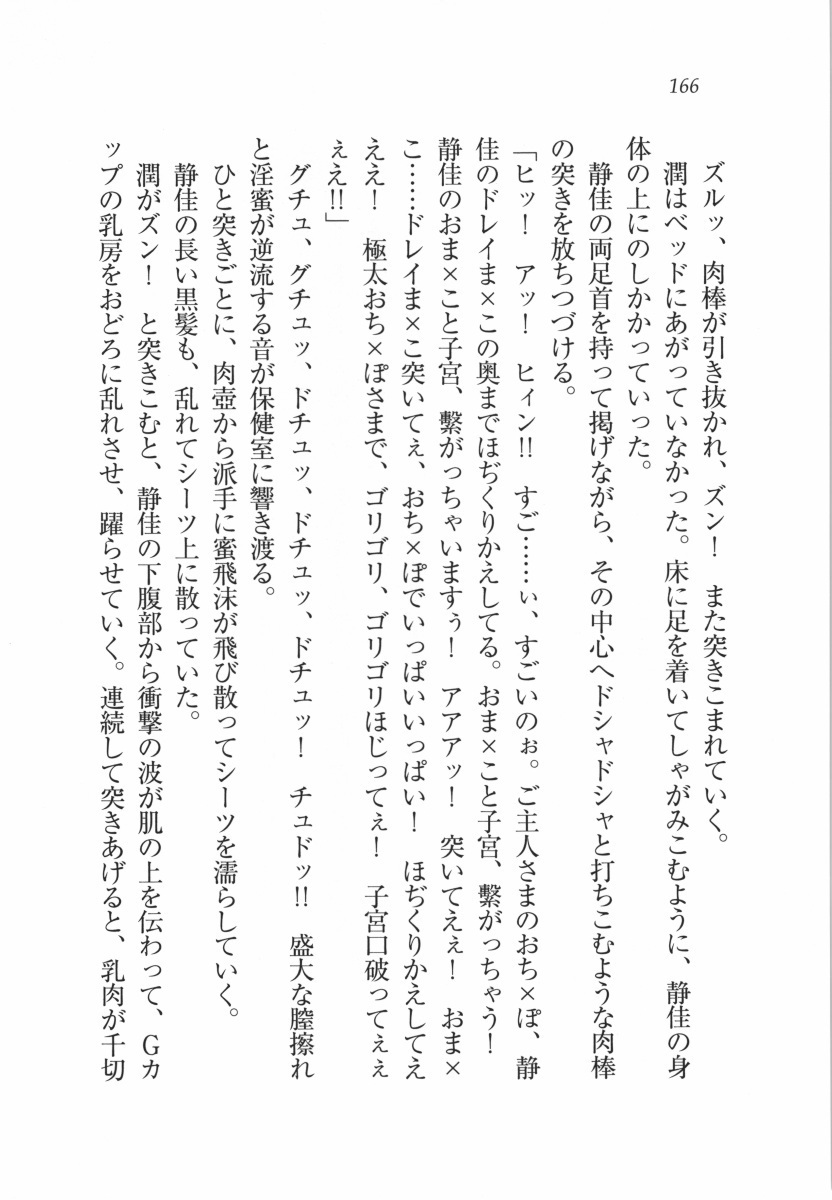 166
ズルッ、肉棒が引き抜かれ、ズン！　また突きこまれていく。
潤はベッドにあがっていなかった。床に足を着いてしゃがみこむように、静佳の身
体の上にのしかかっていった。
静佳の両足首を持って掲げながら、その中心へドシャドシャと打ちこむような肉棒
の突きを放ちつづける。
「ヒッ！　アッ！　ヒィン!!　すご……ぃ、すごいのぉ。ご主人さまのおち×ぽ、静
佳のドレイま×この奥までほぢくりかえしてる。おま×こと子宮、繋がっちゃう！
静佳のおま×こと子宮、繋がっちゃいますぅ！　アアアッ！　突いてえぇ！　おま×
こ……ドレイま×こ突いてぇ、おち×ぽでいっぱいいっぱい！　ほぢくりかえしてえ
ええ！　極太おち×ぽさまで、ゴリゴリ、ゴリゴリほじってぇ！　子宮口破ってぇぇ
ぇえ!!」
グチュ、グチュッ、ドチュッ、ドチュッ、ドチュッ！　チュドッ!!　盛大な膣擦れ
と淫蜜が逆流する音が保健室に響き渡る。
ひと突きごとに、肉壺から派手に蜜飛沫が飛び散ってシーツを濡らしていく。
静佳の長い黒髪も、乱れてシーツ上に散っていた。
潤がズン！　と突きこむと、静佳の下腹部から衝撃の波が肌の上を伝わって、Ｇカ
ップの乳房をおどろに乱れさせ、躍らせていく。連続して突きあげると、乳肉が千切